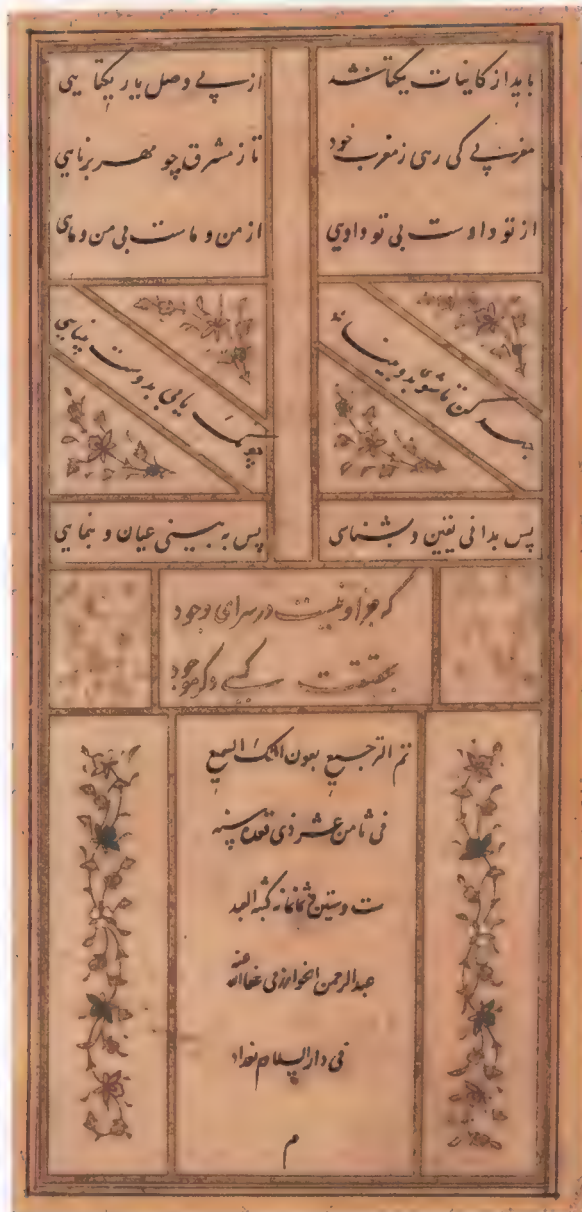 باید از کاینات یکتا شد از پی وصل یار یکتایی
مغربی کی رسی ز مغرب خود تا ز مشرق چو مهر برنایی
از تو و اوست بی تو و اویی از من و ماست بی من و مایی
جهد کن تا شوی بدو بینا
یابی بدوست بینایی
پس بدانی یقین و بشناسی پس به بینی عیان و بنمایی
که جز او نیست در سرای وجود
بحقیقت کسی دگر موجود
تم الترجیع بعون الملک السمیع
فی ثامن عشر ذی قعده سنه
ست و ستین و ثمانمائه کتبه العبد
عبدالرحمن الخوارزمی عفا الله عنه
فی دار السلام بغداد
م